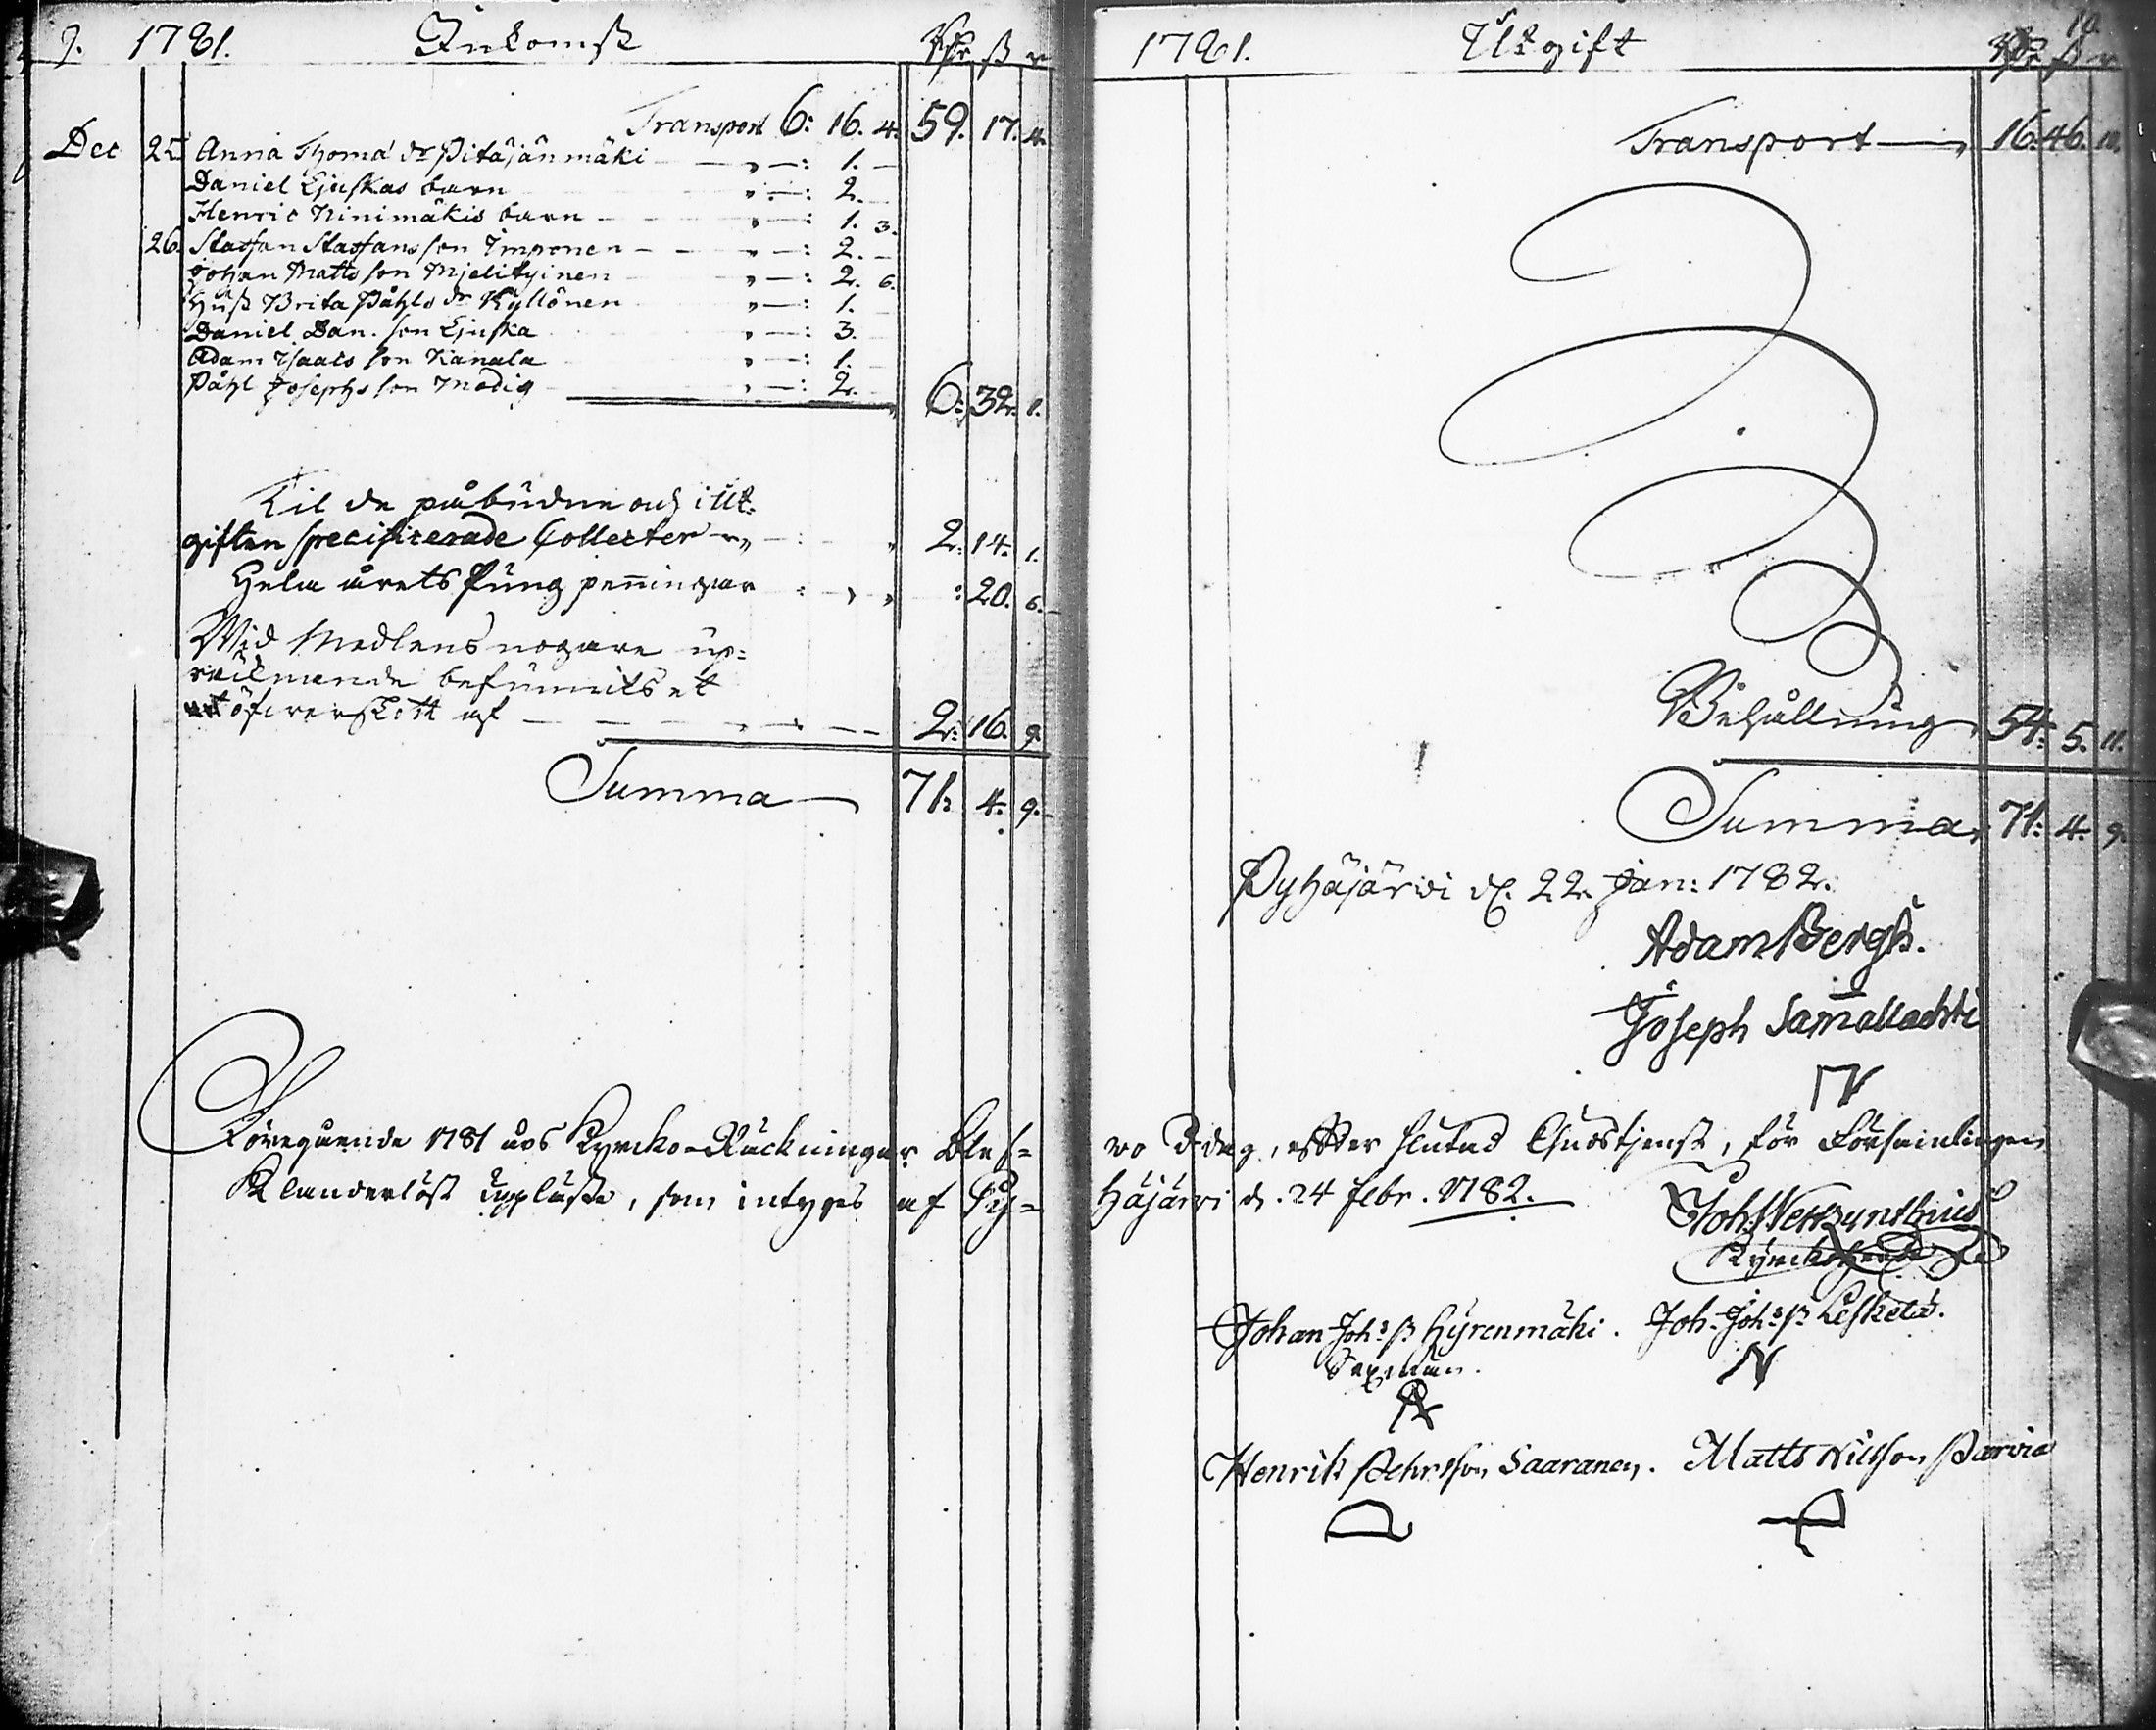 9. 1781. Inkomst Rdr ß r
Transport 6: 16. 4. 59. 17. 4.
Dec 25 Anna Thoma dr Pitäjänmäki 1.
Daniel Ljuskas barn 2.
Henric Ninimäkis barn 1. 3.
26. Staffan Staffans son Timponen 2.
Johan Matts son Mjelityinen 2. 6.
Hust Brita Påhls dr Kyllönen 1.
Daniel Dan. son Ljuska 3.
Adam Isaacs son Kanala 1.
Påhl Josephs son Modig 2. 6: 32. 1.
Til de påbudne och i Ut-
giften specificerade Collecter 2: 14. 1.
Hela årets Pung peningar : 20. 6.
Wid Medlens nogare up-
räknande befunnits et
öfwerskott af 2: 16. 9.
Summa 71: 4. 9.
Föregående 1781 års Kyrcko-Räckningar blef-
Klanderlöst uppläste, som intyges af Py-
10.
1781. Utgift Rdr ß r
Transport 16: 46. 10.
Behållning 54: 5. 11.
Summa 71: 4. 9.
Pyhäjärvi d. 22. Jan: 1782.
Adam Bergh.
Joseph Samallachti
wo I dag, effter slutad Gudstjenst, för Församlingen
häjärvi d. 24 Febr. 1782.
Kyrckoherde
Johan Joh:s ß Hyrenmäki. Joh. Joh:s ß Leskelä.
Sexman. N
Henrik Pehrsson Saaranen. Matts Nilsson Parvia